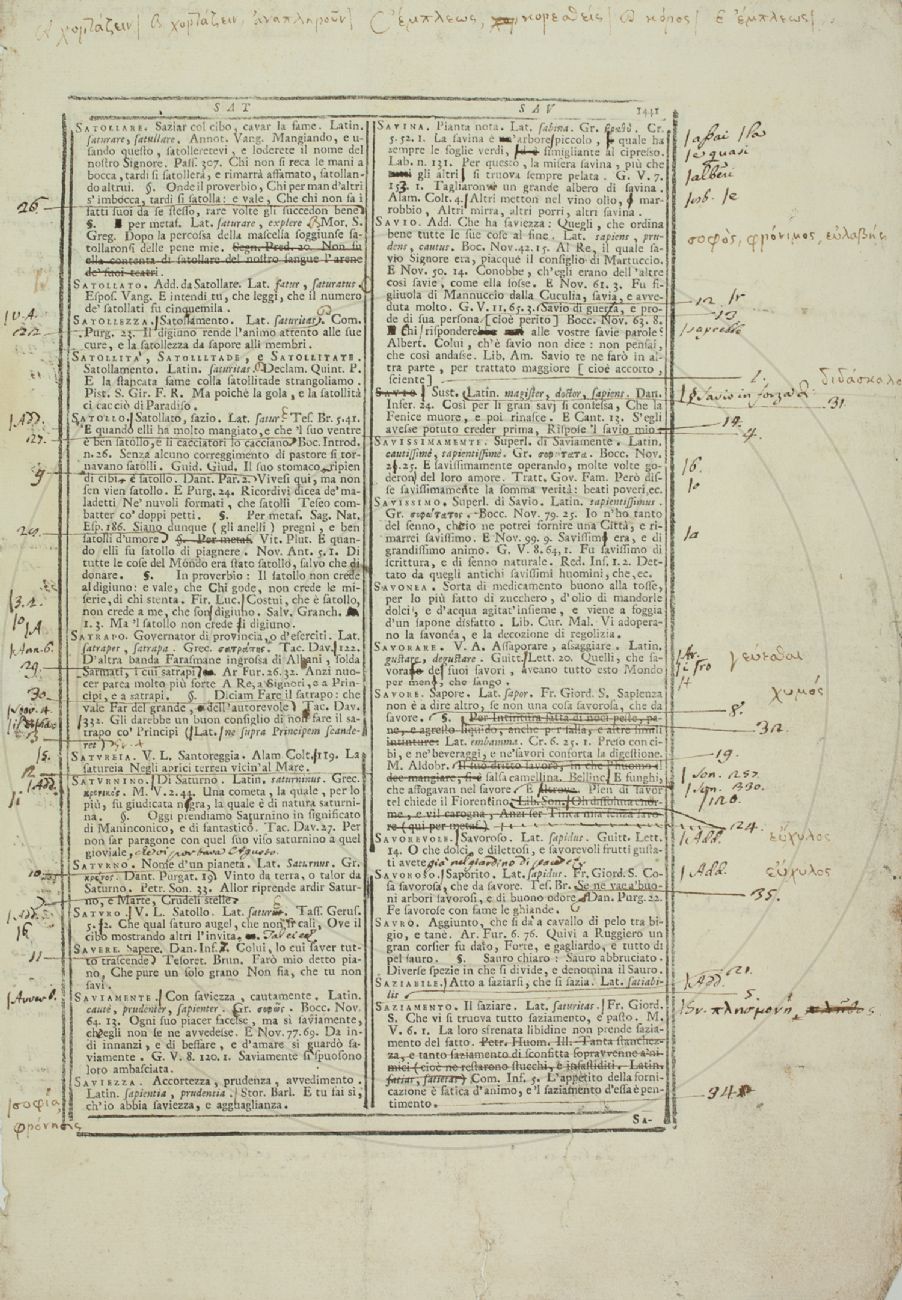 A χορτάζειν| B χορτάζειν, ἀναπληροῦν| C ἐμπλεως, κορεσθείς| D κόρος| E ἐμπλεως|
SAT
SAV 1441
SATOLLARE. Saziar col cibo, cavar la fame. Latin.
saturare, satullare. Annot. Vang. Mangiando, e u-
sando questo, satolleretevi, e loderete il nome del
nostro Signore. Pass. 307. Chi non si reca le mani a
bocca, tardi si satollerà, e rimarrà affamato, satollan-
do altrui. §. Onde il proverbio, Chi per man d'altri
s'imbocca, tardi si satolla: e vale, Che chi non fa i
fatti suoi da se stesso, rare volte gli succedon bene
§. per metaf. Lat. saturare, explere. Mor. S.
Greg. Dopo la percossa della mascella soggiunse sa-
tollaronsi delle pene mie. Segn. Pred. 20. Non fu
ella contenta di satollare del nostro sangue l'arene
de' suoi teatri.
SATOLLATO. Add. da Satollare. Lat. satur, saturatus.
Espos. Vang. E intendi tu, che leggi, che il numero
de' satollati fu cinquemila.
SATOLLEZZA. Satollamento. Lat. saturitas. Com.
Purg. 23. Il digiuno rende l'animo attento alle sue
cure, e la satollezza da sapore alli membri.
SATOLLITA', SATOLLLTADE, e SATOLLITATE.
Satollamento. Latin. saturitas. Declam. Quint. P.
E la stancata fame colla satollitade strangoliamo.
Pist. S. Gir. F. R. Ma poichè la gola, e la satollità
ci cacciò di Paradiso.
SATOLLO. Satollato, sazio. Lat. satur. Tes. Br. 5.41.
E quando elli ha molto mangiato, e che 'l suo ventre
è ben satollo, e li cacciatori lo cacciano. Boc. Introd.
n. 26. Senza alcuno correggimento di pastore si tor-
navano satolli. Guid. Giud. Il suo stomaco, ripien
di cibi, è satollo. Dant. Par. 2. Vivesi qui, ma non
sen vien satollo. E Purg. 24. Ricordivi dicea de' ma-
ladetti Ne' nuvoli formati, che satolli Teseo com-
batter co' doppi petti. §. Per metaf. Sag. Nat.
Esp. 186. Siano dunque (gli anelli) pregni, e ben
satolli d'umore §. Per metaf. Vit. Plut. E quan-
do elli fu satollo di piagnere. Nov. Ant. 5. 1. Di
tutte le cose del Mondo era stato satollo, salvo che di
donare. §. In proverbio: Il satollo non crede
al digiuno: e vale, che Chi gode, non crede le mi-
serie, di chi stenta. Fir. Luc. Costui, che è satollo,
non crede a me, che son digiuno. Salv. Granch.
1. 3. Ma 'l satollo non crede il digiuno.
SATRAPO. Governator di provincia, o d'eserciti. Lat.
satraper, satrapa. Grec. σατράπης. Tac. Dav. 122.
D'altra banda Farasmane ingrossa di Albani, solda
Sarmati, i cui satrapi Ar. Fur. 26. 32. Anzi nuo-
cer parea molto più forte A Re, a Signori, e a Prin-
cipi, e a satrapi. §. Diciam Fare il satrapo: che
vale Far del grande, dell'autorevole Tac. Dav.
332. Gli darebbe un buon consiglio di non fare il sa-
trapo co' Principi Lat. ne supra Principem scande-
ret
SATUREIA. V. L. Santoreggia. Alam Colt. 119. La
satureia Negli aprici terren vicin'al Mare.
SATURNINO. Di Saturno. Latin. saturninus. Grec.
κρονικός. M. V. 2. 44. Una cometa, la quale, per lo
più, fu giudicata nigra, la quale è di natura saturni-
na. §. Oggi prendiamo Saturnino in significato
di Maninconico, e di fantastico. Tac. Dav. 27. Per
non far paragone con quel suo viso saturnino a quel
gioviale,
SATURNO. Nome d'un pianeta. Lat. Saturnus. Gr.
κρόνος. Dant. Purgat. 19. Vinto da terra, o talor da
Saturno. Petr. Son. 33. Allor riprende ardir Satur-
no, e Marte, Crudeli stelle
SATURO. V. L. Satollo. Lat. satur. Tass. Gerus.
5. 2. Che qual saturo augel, che non si cali, Ove il
cibo mostrando altri l'invita.
SAVERE. Sapere. Dan. Inf. Colui, lo cui saver tut-
to trascende. Tesoret. Brun. Farò mio detto pia-
no, Che pure un solo grano Non sia, che tu non
savi.
SAVIAMENTE. Con saviezza, cautamente. Latin.
cautè, prudenter, sapienter. Gr. σοφῶς. Bocc. Nov.
64. 13. Ogni suo piacer facesse, ma sì saviamente,
ch'egli non se ne avvedesse. E Nov. 77. 69. Da in-
di innanzi, e di beffare, e d'amare si guardò sa-
viamente. G. V. 8. 120. 1. Saviamente si spuosono
loro ambasciata.
SAVIEZZA. Accortezza, prudenza, avvedimento.
Latin. sapientia, prudentia. Stor. Barl. E tu sai sì,
ch'io abbia saviezza, e agguaglianza.
SAVINA. Pianta nota. Lat. sabina. Gr. βράθυ. Cr.
5. 52. 1. La savina è arbore piccolo, quale ha
sempre le foglie verdi, simigliante al cipresso.
Lab. n. 131. Per questo, la misera savina, più che
gli altri si truova sempre pelata. G. V. 7.
153. 1. Tagliarone un grande albero di savina.
Alam. Colt. 4. Altri metton nel vino olio, mar-
robbio, Altri mirra, altri porri, altri savina.
SAVIO. Add. Che ha saviezza: Quegli, che ordina
bene tutte le sue cose al fine. Lat. sapiens, pru-
dens, cautus. Boc. Nov. 42. 15. Al Re, il quale sa-
vio Signore era, piacque il consiglio di Martuccio.
E Nov. 50. 14. Conobbe, ch'egli erano dell'altre
così savie, come ella fosse. E Nov. 61. 3. Fu fi-
gliuola di Mannuccio dalla Cuculia, savia, e avve-
duta molto. G. V. 11. 65. 3. Savio di guerra, e pro-
de di sua persona [cioè perito] Bocc. Nov. 63. 8.
Chi rispondere alle vostre savie parole?
Albert. Colui, ch'è savio non dice: non pensai,
che così andasse. Lib. Am. Savio te ne farò in al-
tra parte, per trattato maggiore [cioè accorto,
sciente]
SAVIO. Sust. Latin. magister, doctor, sapiens. Dan.
Infer. 24. Così per li gran savj si confessa, Che la
Fenice muore, e poi rinasce. E Cant. 12. S'egli
avesse potuto creder prima, Rispose 'l savio mio
SAVISSIMAMENTE. Superl. di Saviamente. Latin.
cautissimè, sapientissimè. Gr. σοφώτατα. Bocc. Nov.
25. E savissimamente operando, molte volte go-
deron del loro amore. Tratt. Gov. Fam. Però dis-
se savissimamente la somma verità: beati poveri, ec.
SAVISSIMO. Superl. di Savio. Latin. sapientissimus.
Gr. σοφώτατος. Bocc. Nov. 79. 25. Io n'ho tanto
del senno, ch'io ne potrei fornire una Città, e ri-
marrei savissimo. E Nov. 99. 9. Savissim era, e di
grandissimo animo. G. V. 8. 64, 1. Fu savissimo di
scrittura, e di senno naturale. Red. Ins. 1. 2. Det-
tato da quegli antichi savissimi huomini, che, ec.
SAVONEA. Sorta di medicamento buono alla tosse,
per lo più fatto di zucchero, d'olio di mandorle
dolci, e d'acqua agitat'insieme, e viene a foggia
d'un sapone disfatto. Lib. Cur. Mal. Vi adopera-
no la savonéa, e la decozione di regolizia.
SAVORARE. V. A. Assaporare, assaggiare. Latin.
gustare, degustare. Guitt. Lett. 20. Quelli, che sa-
vorano de' suoi favori, aveano tutto esto Mondo
per meno, che fango
SAVORE. Sapore. Lat. sapor. Fr. Giord. S. Sapienza
non è a dire altro, se non una cosa savorosa, che da
savore. §. Per Intintura fatta di noci peste, pa-
ne, e agresto liquido, anche per salsa, e altre simili
intinture. Lat. embamma. Cr. 6. 25. 1. Presto con ci-
bi, e ne' beveraggi, e ne' savori conforta la digestione.
M. Aldobr. Il suo dritto lavoro, in che l'huomo il
dee mangiare, si è salsa camellina. Bellinc. E funghi,
che affogavan nel savore E altrove. Pien di savor
tel chiede il Fiorentino. Lib. Son. Oh dissoluta chor-
me, e vil carogna, Anzi
re (qui per metaf.)
SAVOREVOLE. Savoroso. Lat. sapidus. Guitt. Lett.
14. O che dolci, e dilettosi, e savorevoli frutti gusta-
ti avete già nel giardino di
SAVOROSO. Saporito. Lat. sapidus. Fr. Giord. S. Co-
sa savorosa, che da savore. Tes. Br. Se ne va a' buo-
ni arbori savorosi, e di buono odore. Dan. Purg. 22.
Fe savorose con fame le ghiande.
SAVRO. Aggiunto, che si da' a cavallo di pelo tra bi-
gio, e tanè. Ar. Fur. 6. 76. Quivi a Ruggiero un
gran corsier fu dato, Forte, e gagliardo, e tutto di
pel sauro. §. Sauro chiaro: Sauro abbruciato.
Diverse spezie in che si divide, e denomina il Sauro.
SAZIABILE. Atto a saziarsi, che si sazia. Lat. satiabi-
lis
SAZIAMENTO. Il saziare. Lat. saturitas. Fr. Giord.
S. Che vi si truova tutto saziamento, e pasto. M.
V. 6. 1. La loro sfrenata libidine non prende sazia-
mento del fatto. Petr. Huom. Ill. Tanta stanchez-
za, e tanto saziamento di sconfitta sopravvenne a' ni-
mici (cioè ne restarono stucchi, e infastiditi. Latin.
satias, satietas) Com. Inf. 5. L'appetito della forni-
cazione è fatica d'animo, e 'l saziamento d'essa è pen-
timento.
SA-
26
V. A.
Add.
27.
9
29
30
15.
12
Add.
10
Add.
16
11
σοφία,
φρόνησις
assai
e quasi
alberi
σοφός, φρόνιμος, εὐλαβής
12.
13
1.
διδάσκαλο
Savio in forza d
31
14.
4.
16.
γεύεσθαι
χυμός
8.
32.
19.
Son. 257.
24.
Add.
εὔχυλος
Add.
εὔχυλος
35.
Add. 20.
5.
Gr. πλησμονή,
34